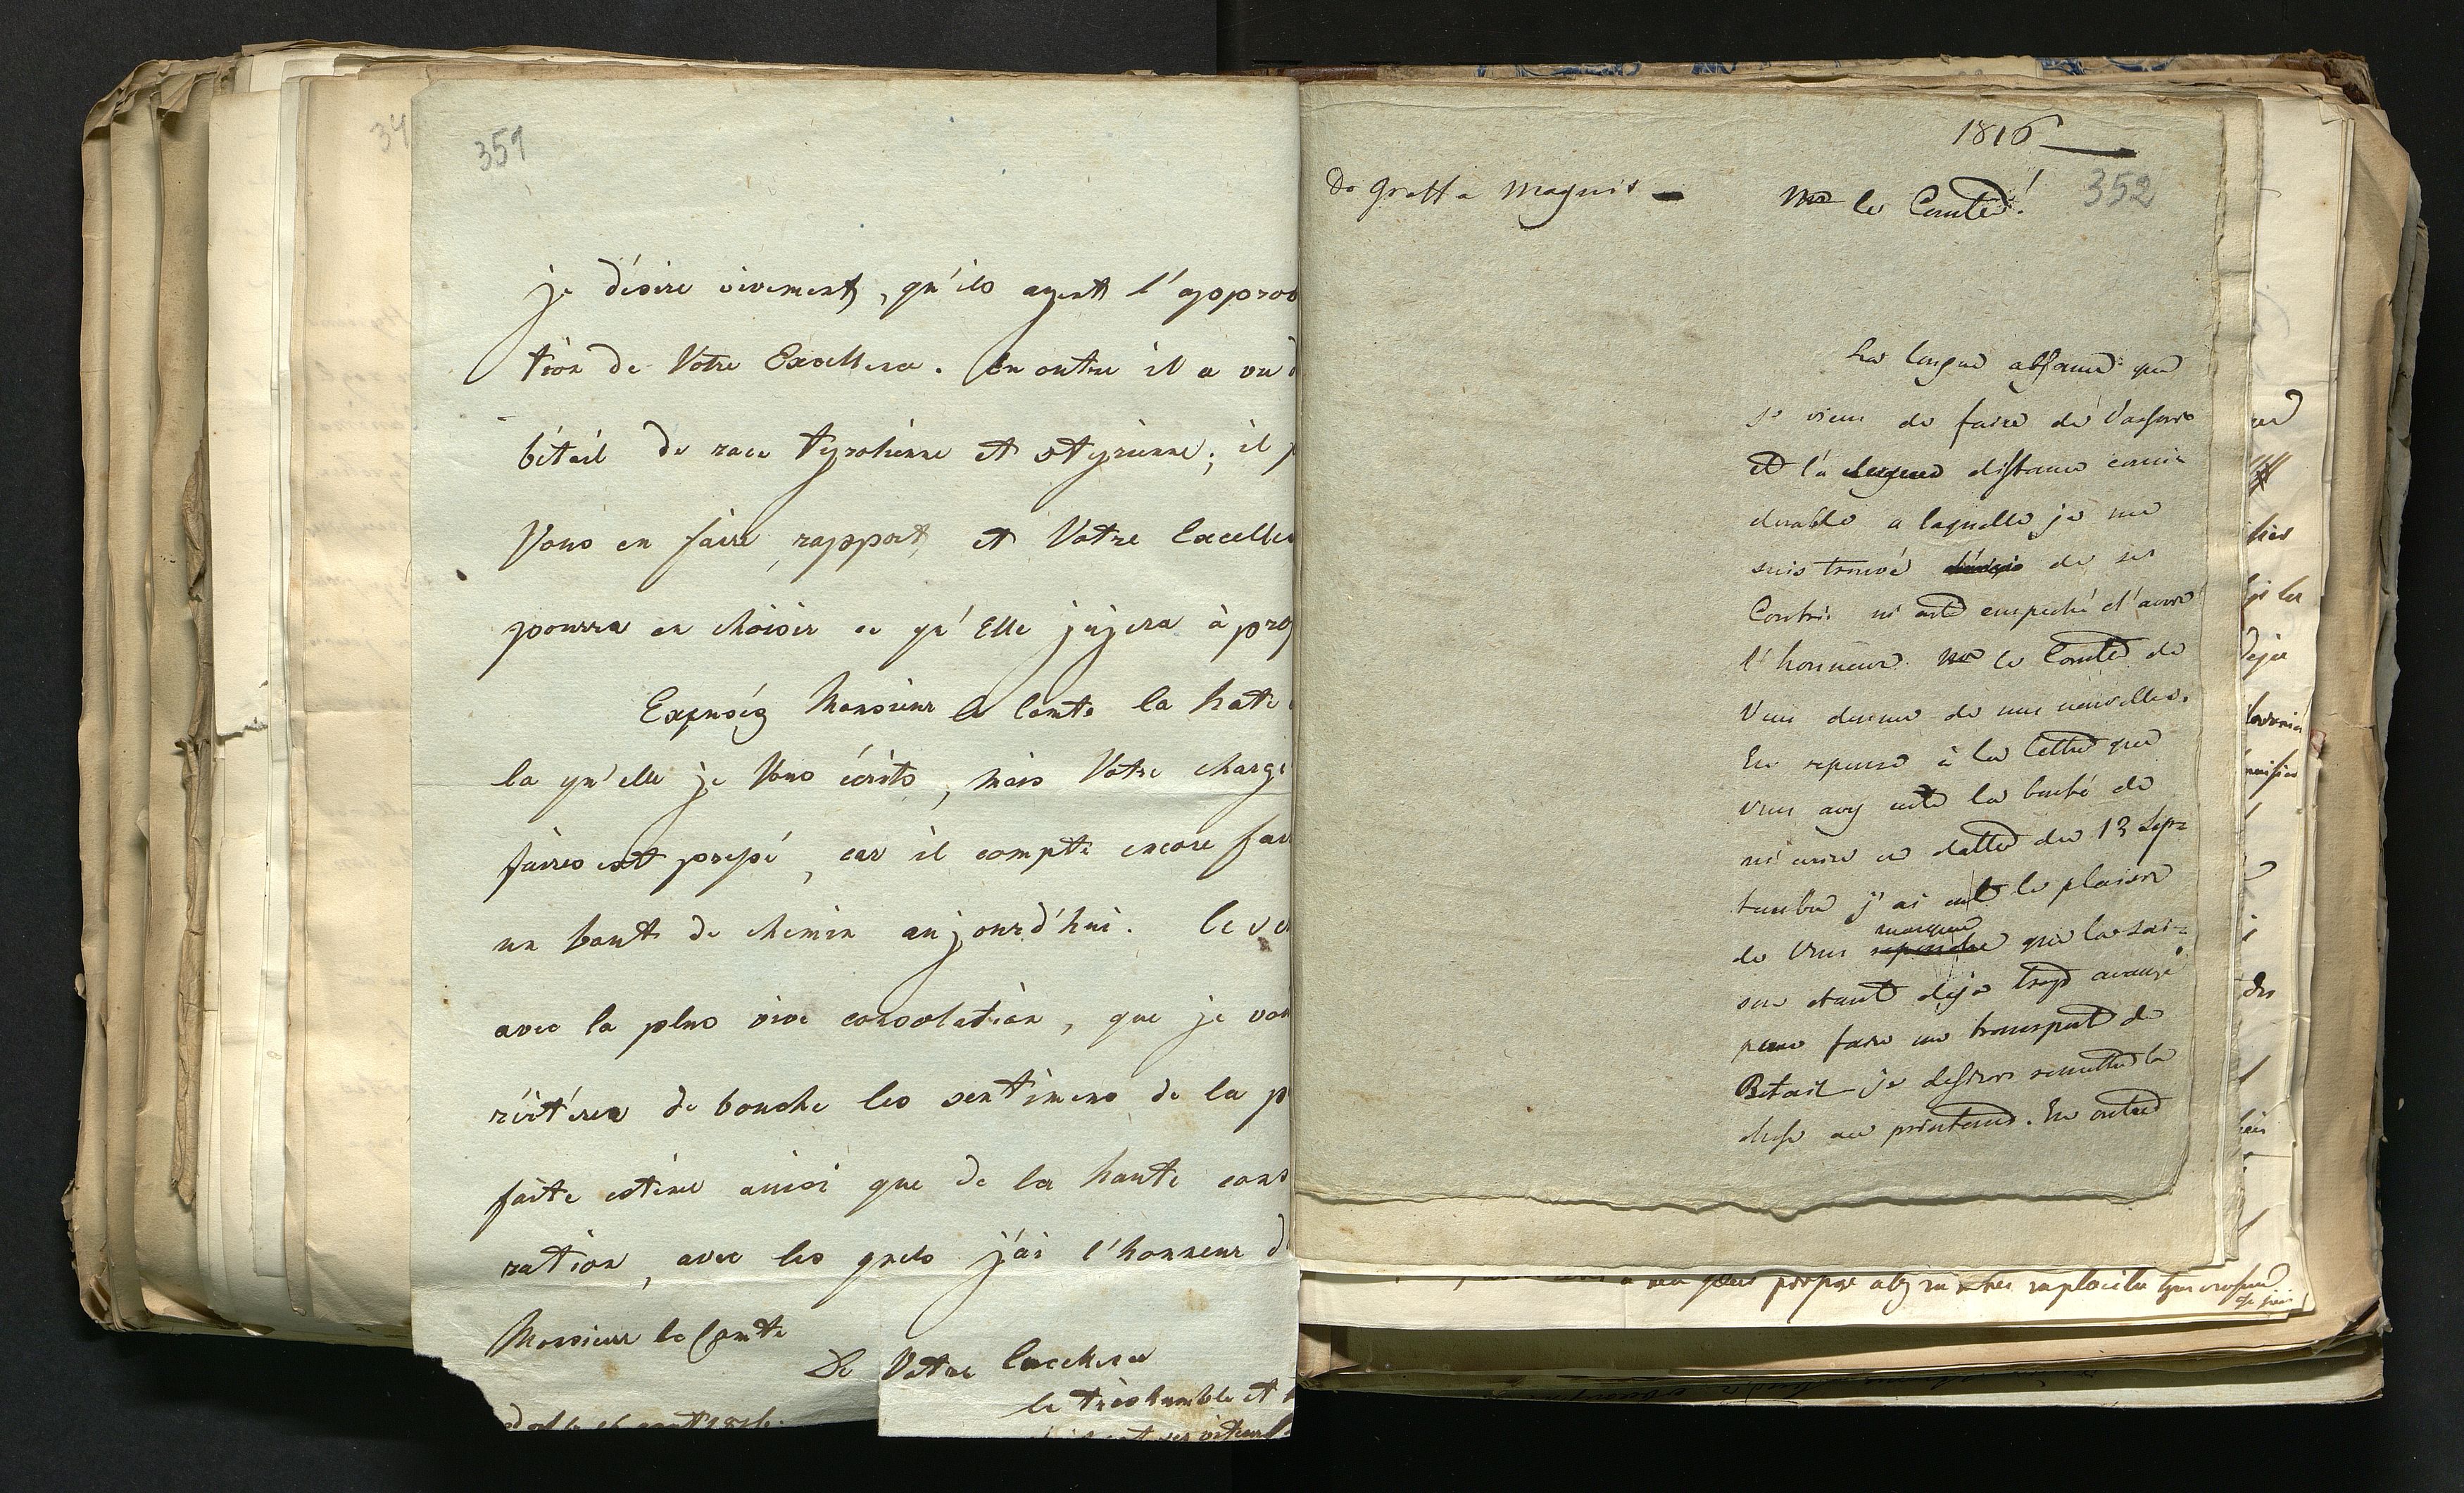 351
je désire vivement, qu'ils ayent l'approb
tion de Votre Excellence. En outre il a vu d
bétail de race tyrolienne et styrienne; il p
Vous en faire rapport et Votre Excellen
pourra en choisir ce qu'Elle jugera à prop
Expuség Monsieur le Comte la hate
la qu'elle je Vous écrits, mais Votre charg
faires est pressé, car il compte encore fair
un bout de chemin aujourd'hui. Ce se
avec la plus vive consolation, que je vou
réitérer de bouche les sentimens de la p
faite estime ainsi que de la haute cons
ration, avec les quels j'ai l'honneur d
Monsieur le Comte
De Votre Excellence
le très humble et
août 1816.
34
1816
352
Do Graffa Magnis
Mr le Comte!
La longue absence que
je viens de faire de Varsovie
et la longue distance consi-
derable a laquelle je me
suis trouvé de ses
Contrés m'ont empeché d'avoir
l'honneur Mr le Comte de
Vous donner de mes nouvelles.
En reponse à la lettre que
vous avez eute la bonté de
m'ecrire en datte du 13 Sep=
tembre j'ai eut le plaisir
marquer
de Vous repondre que la sai=
son etant deja trop avancé
pour faire un transport de
Betail je desirois remettre la
chose au printems. En outre